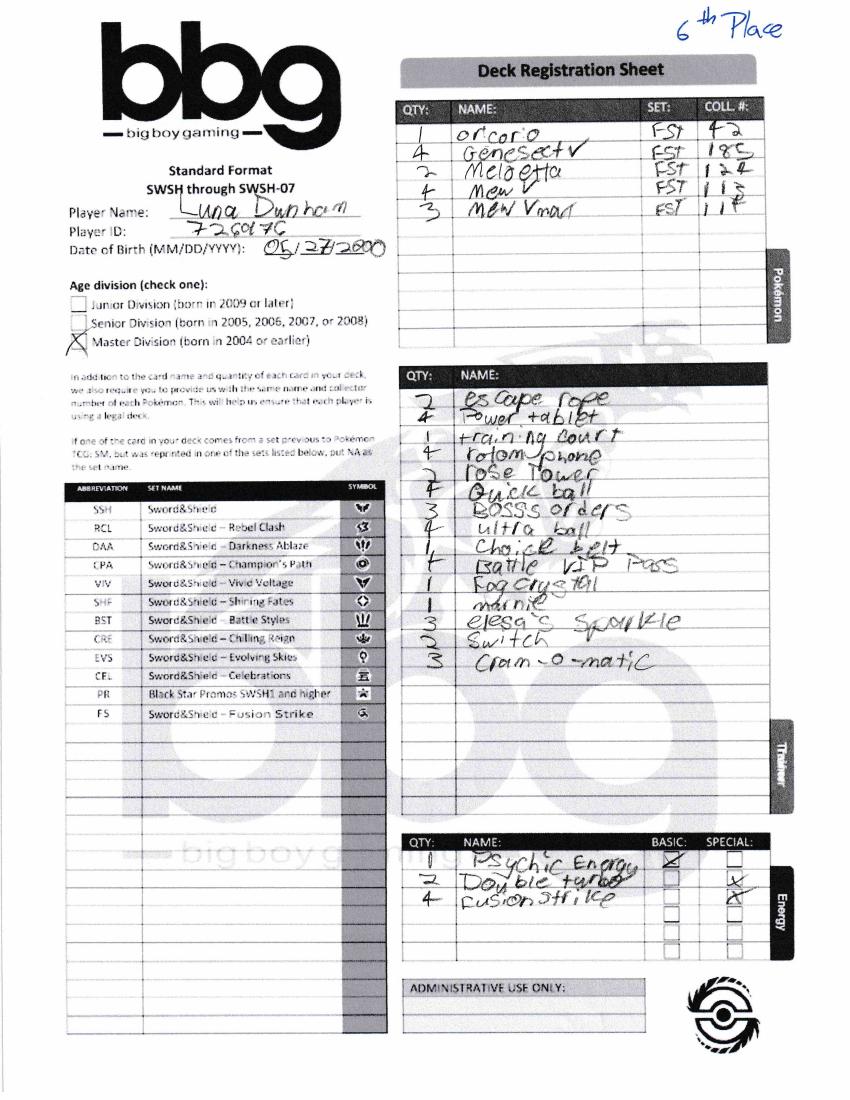 6th Place
bbg
big boy gaming
Deck Registration Sheet
Standard Format
SWSH through SWSH-07
Player Name: Luna Dunham
Player ID: 7260176
Date of Birth (MM/DD/YYYY): 05/27/2000
Age division (check one):
Junior Division (born in 2009 or later)
Senior Division (born in 2005, 2006, 2007, or 2008)
X Master Division (born in 2004 or earlier)
In addition to the card name and quantity of each card in your deck,
we also require you to provide us with the same name and collector
number of each Pokémon. This will help us ensure that each player is
using a legal deck.
If one of the card in your deck comes from a set previous to Pokémon
TCG: SM, but was reprinted in one of the sets listed below, put NA as
the set name.
ABBREVIATION SET NAME SYMBOL
SSH Sword&Shield
RCL Sword&Shield – Rebel Clash
DAA Sword&Shield – Darkness Ablaze
CPA Sword&Shield – Champion's Path
VIV Sword&Shield – Vivid Voltage
SHF Sword&Shield – Shining Fates
BST Sword&Shield – Battle Styles
CRE Sword&Shield – Chilling Reign
EVS Sword&Shield – Evolving Skies
CEL Sword&Shield – Celebrations
PR Black Star Promos SWSH1 and higher
FS Sword&Shield – Fusion Strike
QTY: NAME: SET: COLL. #:
1 oricorio FST 42
4 Genesect V FST 185
2 Meloetta FST 124
4 Mew V FST 113
3 Mew Vmax FST 114
Pokémon
QTY: NAME:
2 escape rope
4 Power tablet
1 training court
4 rotom phone
2 rose Tower
4 Quick ball
3 Bosss orders
4 ultra ball
1 Choice belt
4 Battle VIP Pass
1 Fog crystal
1 marnie
3 elesa's Sparkle
2 Switch
3 Cram-o-matic
Trainer
QTY: NAME: BASIC: SPECIAL:
1 Psychic Energy X
2 Double turbo X
4 Fusion strike X
Energy
ADMINISTRATIVE USE ONLY:
bbg
big boy gaming